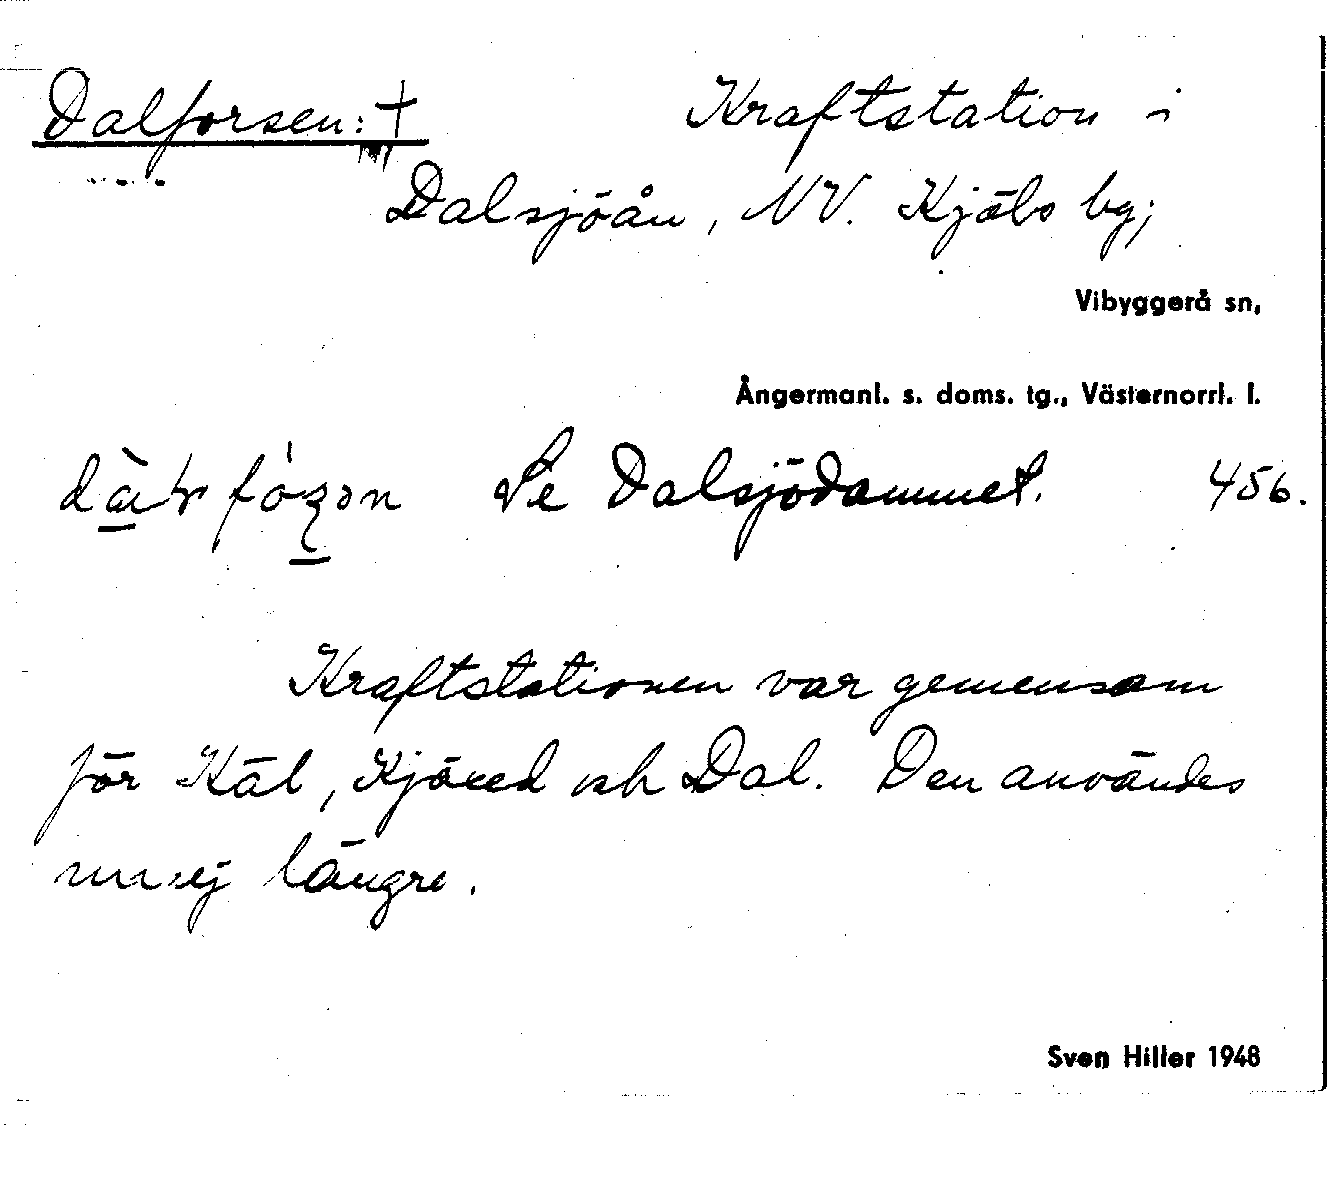 Dalforsen: † Kraftstation i
Dalsjöån, NV. Kjäls by;
Vibyggerå sn,
Ångermanl. s. doms. tg., Västernorrl. l.
Se Dalsjödammet. 456.
Kraftstationen var gemensam
för Käl, och Dal. Den användes
nu ej längre.
Sven Hiller 1948